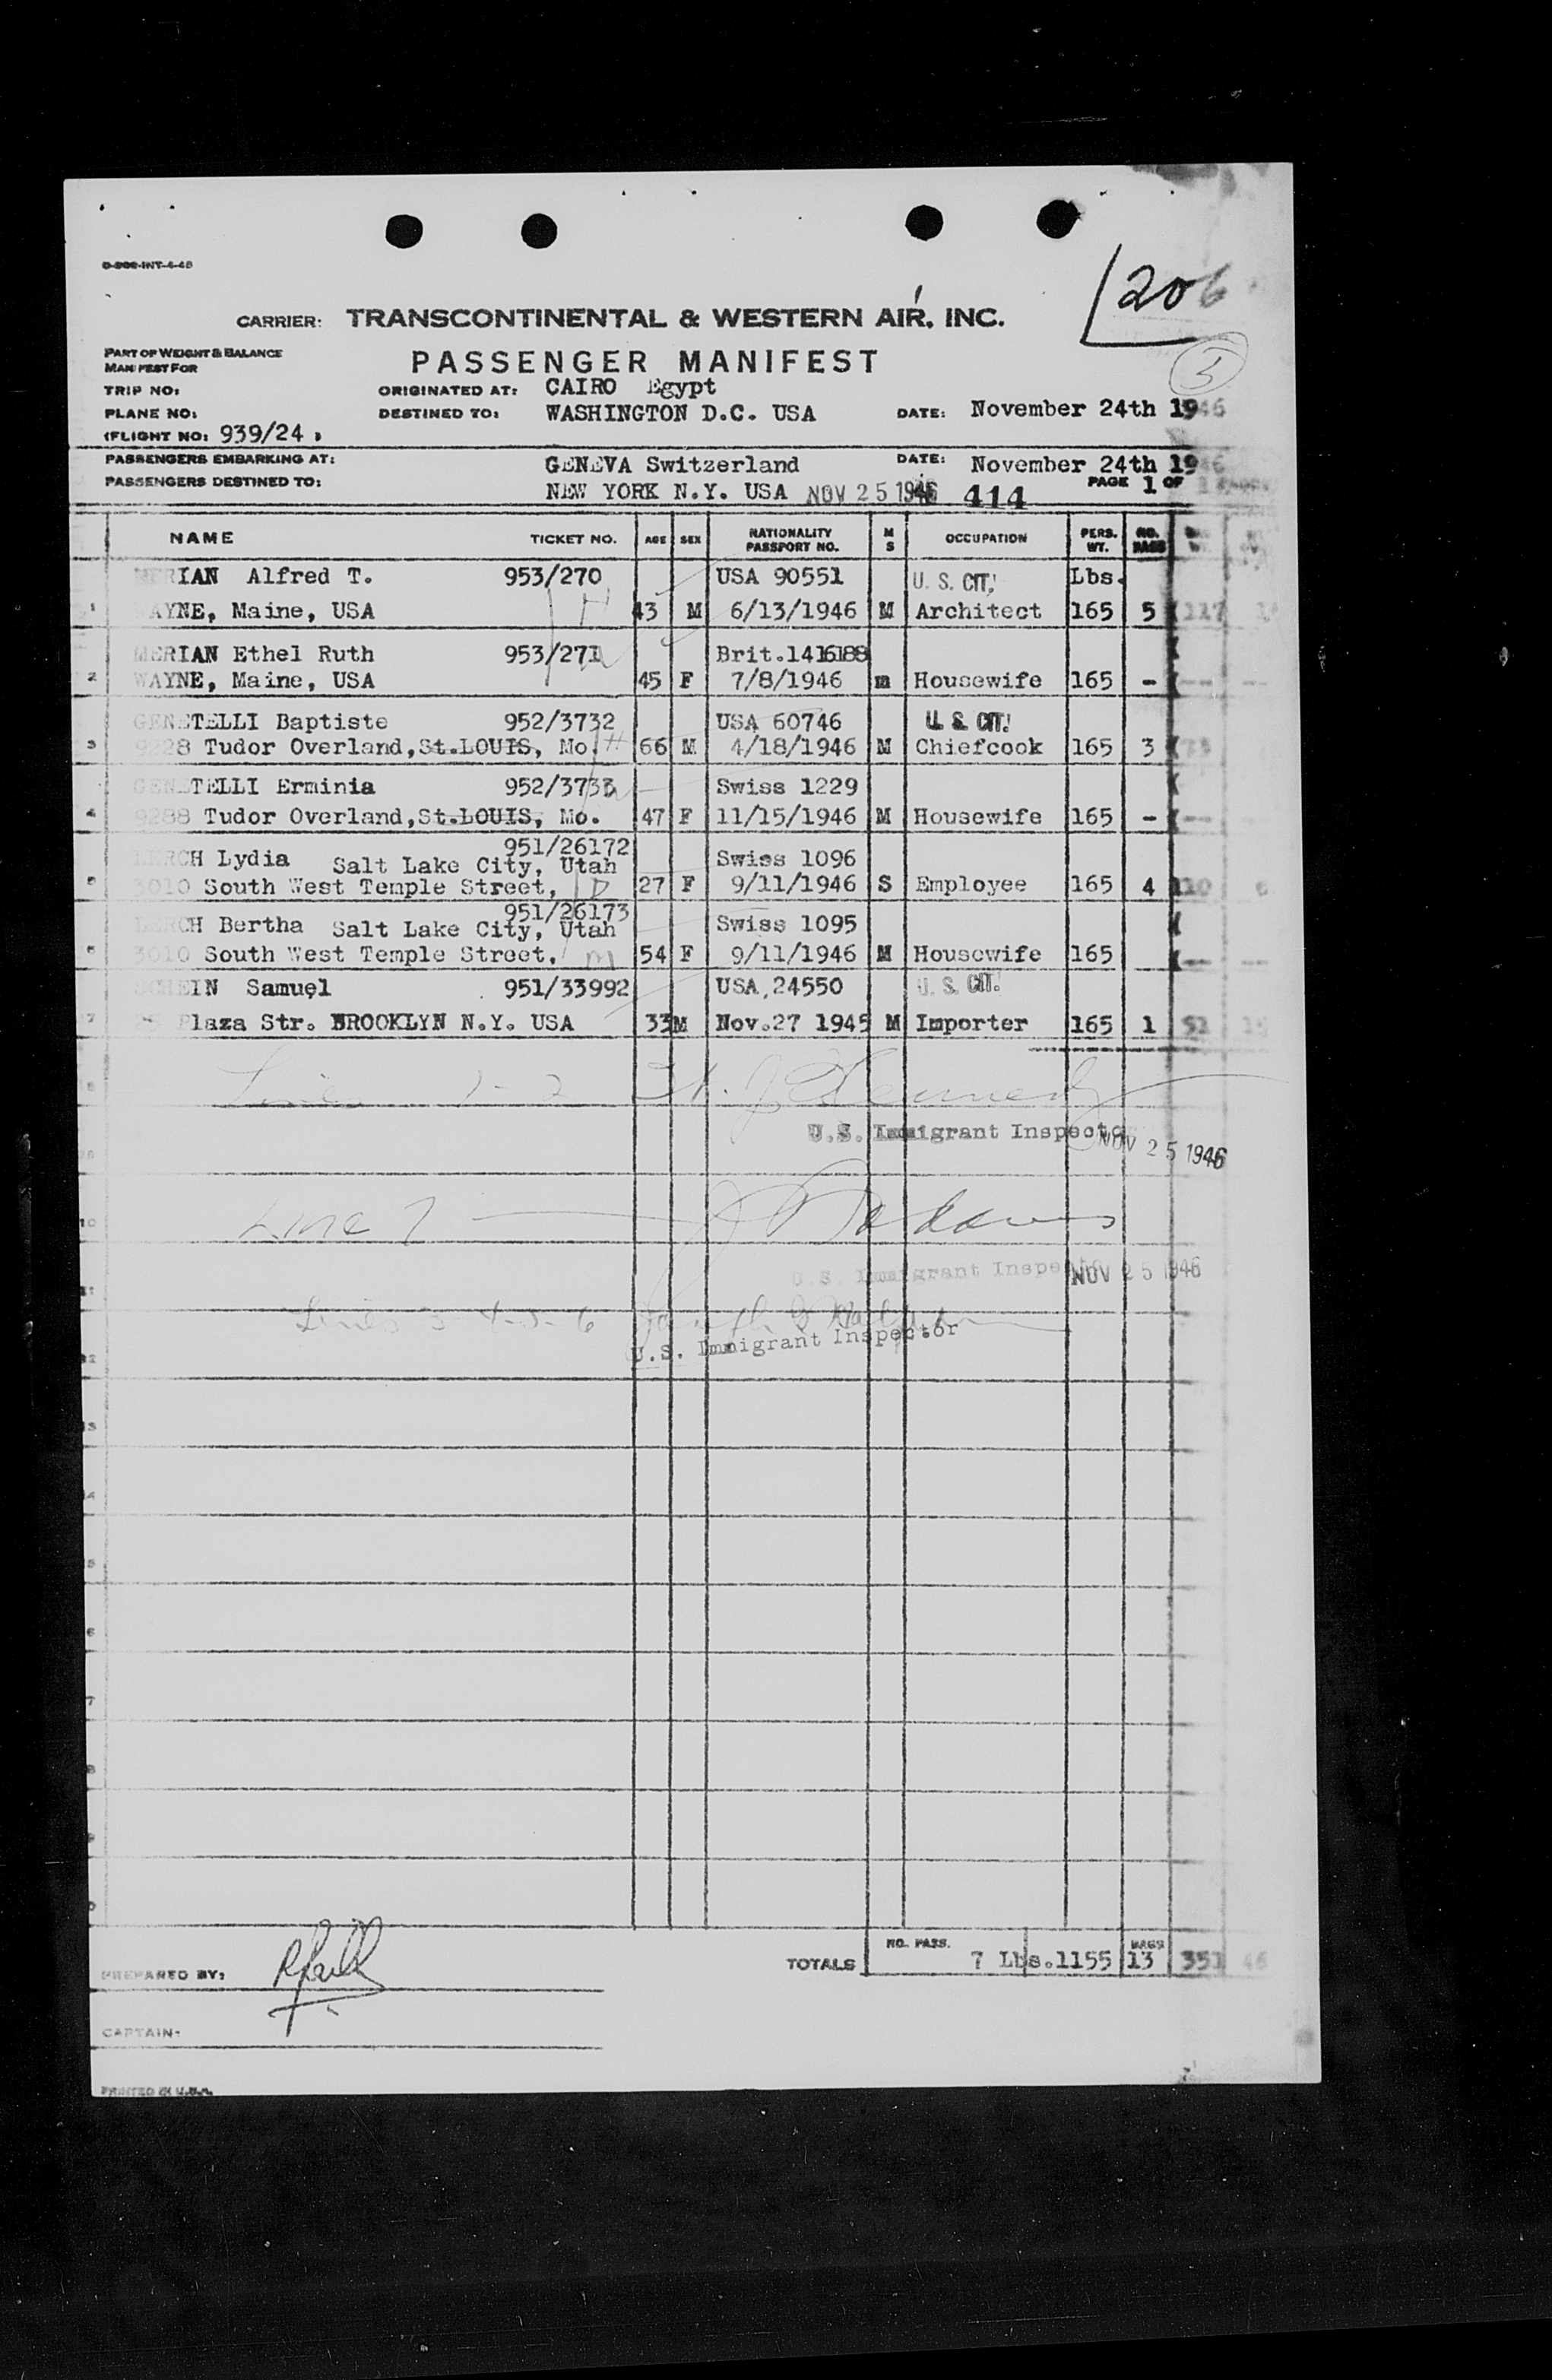 O-906-INT-4-46
206
CARRIER: TRANSCONTINENTAL & WESTERN AIR, INC.
PART OF WEIGHT & BALANCE
MANIFEST FOR
PASSENGER MANIFEST
TRIP NO: ORIGINATED AT: CAIRO Egypt
PLANE NO: DESTINED TO: WASHINGTON D.C. USA DATE: November 24th 1946
(FLIGHT NO: 939/24 )
PASSENGERS EMBARKING AT: GENEVA Switzerland DATE: November 24th 1946
PASSENGERS DESTINED TO: NEW YORK N.Y. USA NOV 25 1946 414 PAGE 1 OF
NAME TICKET NO. AGE SEX NATIONALITY PASSPORT NO. M S OCCUPATION PERS. WT. NO. BAGS
MERIAN Alfred T. 953/270 USA 90551 U. S. CIT. Lbs.
1 WAYNE, Maine, USA 43 M 6/13/1946 M Architect 165 5 117
MERIAN Ethel Ruth 953/271 Brit.1416188
2 WAYNE, Maine, USA 45 F 7/8/1946 m Housewife 165 - --  --
GENETELLI Baptiste 952/3732 USA 60746 U. S. CIT.
3 9228 Tudor Overland,St.LOUIS, Mo. 66 M 4/18/1946 M Chiefcook 165 3 73
GENETELLI Erminia 952/3733 Swiss 1229
4 9288 Tudor Overland,St.LOUIS, Mo. 47 F 11/15/1946 M Housewife 165 - --
951/26172
LERCH Lydia Salt Lake City, Utah Swiss 1096
5 3010 South West Temple Street, 27 F 9/11/1946 S Employee 165 4 110
951/26173
LERCH Bertha Salt Lake City, Utah Swiss 1095
6 3010 South West Temple Street, 54 F 9/11/1946 M Housewife 165 -- --
SCHEIN Samuel 951/33992 USA,24550 U. S. CIT.
7 Plaza Str. BROOKLYN N.Y. USA 33 M Nov.27 1945 M Importer 165 1 51
Lines 1-2 Kennedy
U.S. Immigrant Inspector NOV 25 1946
10 Line 7
U.S. Immigrant Inspector NOV 25 1946
Lines 3-4-5-6
U.S. Immigrant Inspector
TOTALS NO. PASS. 7 Lbs.1155 BAGS 13 351 46
PREPARED BY:
CAPTAIN:
PRINTED IN U.S.A.